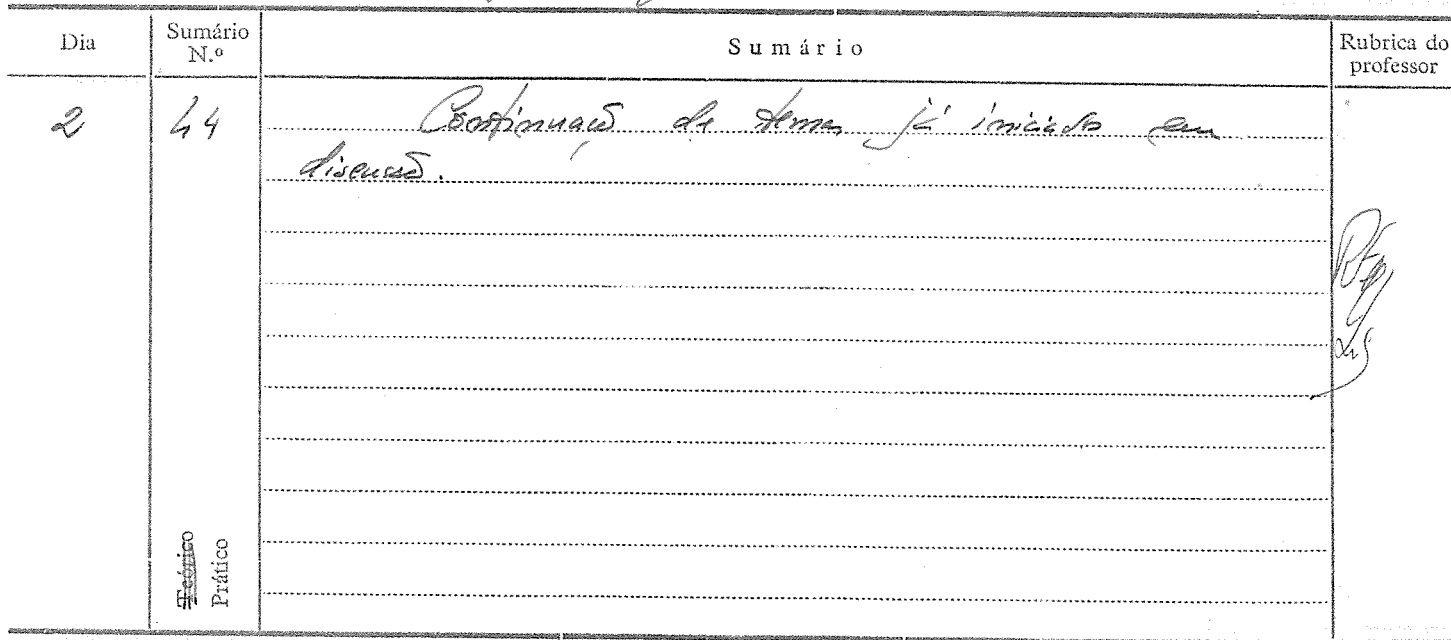 Dia
Sumário N.º
Sumário
Rubrica do professor
2
44
Continuação de temas já iniciados em
discussão.
Teórico
Prático